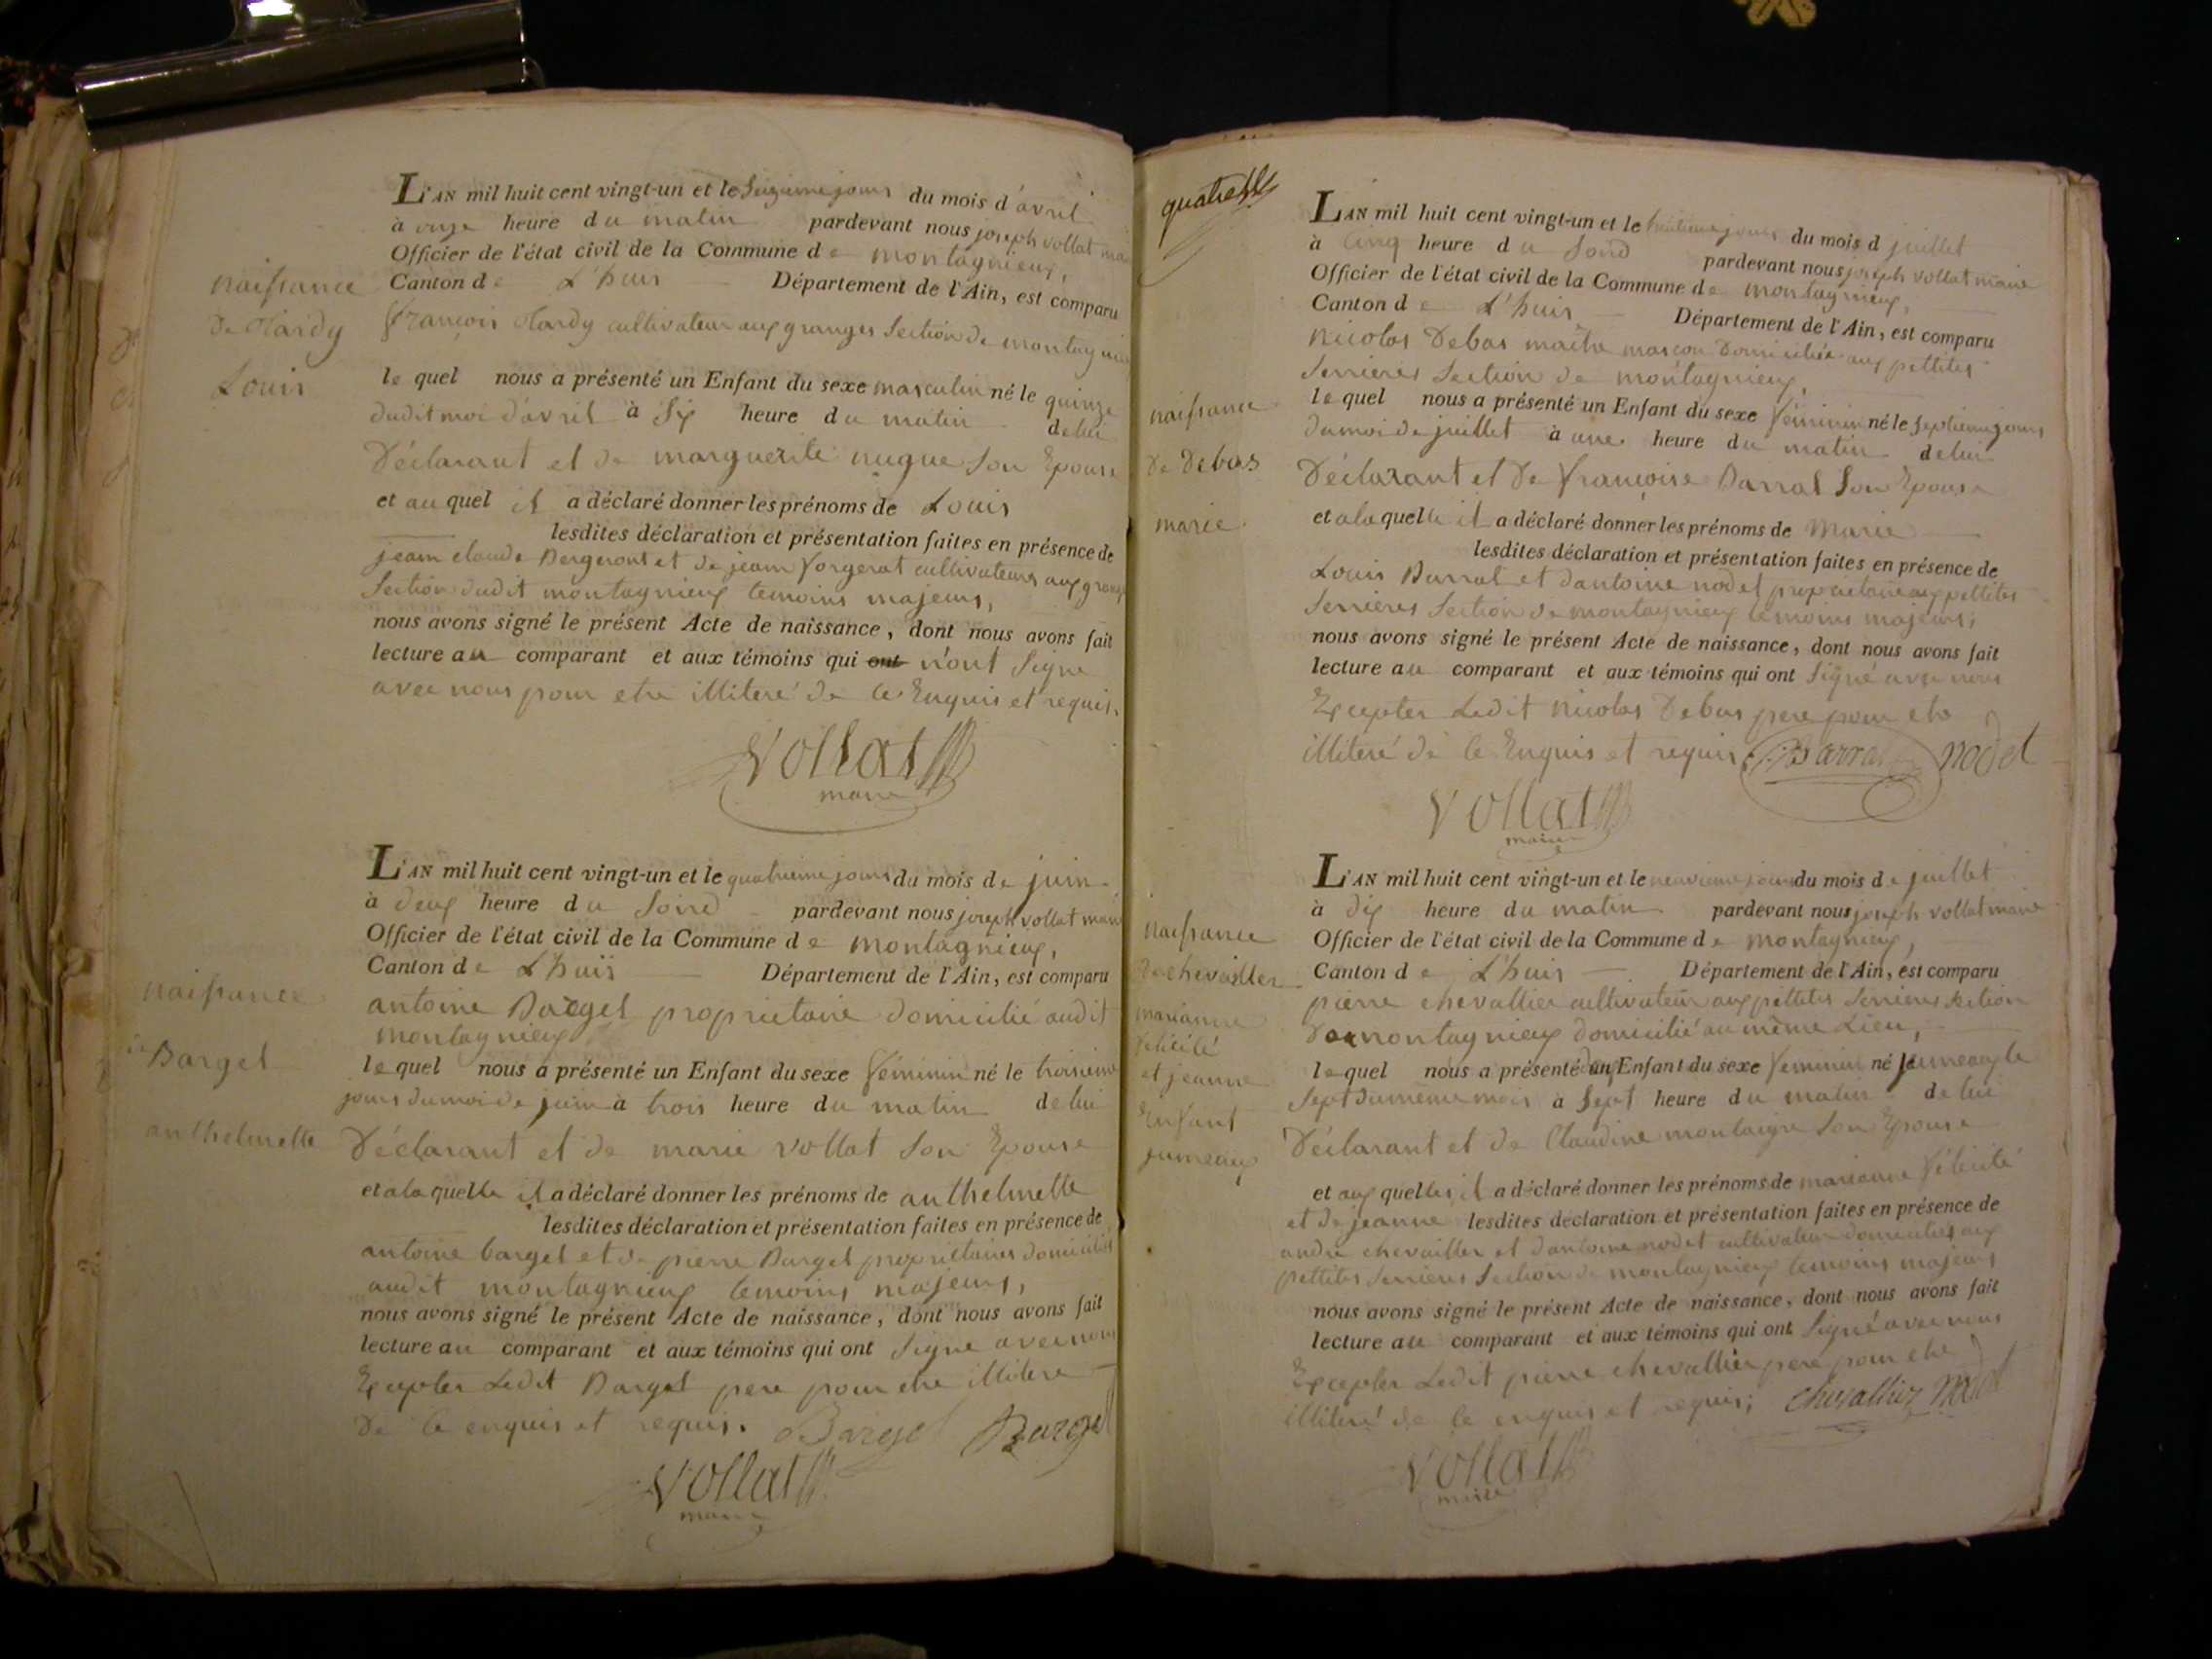 naissance
de Hardy
Louis
L'AN mil huit cent vingt-un et le seizieme jours du mois d'avril
à onze heure du matin pardevant nous joseph vollat
Officier de l'état civil de la Commune de montagnieux,
Canton de L'huis Département de l'Ain, est comparu
françois Hardy cultivateur aux granges Section de montagnieux
lequel nous a présenté un Enfant du sexe masculin né le quinze
dudit moi d'avril à six heure du matin de lui
Déclarant et de marguerite nugue son Epouse
et auquel il a déclaré donner les prénoms de Louis
lesdites déclaration et présentation faites en présence de
jean claude Bergeront et de jean forgerat cultivateurs aux granges
Section dudit montagnieux temoins majeurs,
nous avons signé le présent Acte de naissance, dont nous avons fait
lecture au comparant et aux témoins qui ont n'ont signe
avec nous pour etre illiteré de ce Enquis et requis.
Vollat
maire
naissance
Bargel
anthelmette
L'AN mil huit cent vingt-un et le quatrieme jours du mois de juin
à deux heure du soire pardevant nous joseph vollat maire
Officier de l'état civil de la Commune de montagnieux,
Canton de L'huis Département de l'Ain, est comparu
antoine Bargel proprietaire domicilié audit
montagnieux
lequel nous a présenté un Enfant du sexe féminin né le troisieme
jours du moi de juin à trois heure du matin de lui
Déclarant et de marie vollat son Epouse
et a la quelle il a déclaré donner les prénoms de anthelmette
lesdites déclaration et présentation faites en présence de
antoine bargel et de pierre Bargel proprietaires domiciliés
audit montagnieux temoins majeurs,
nous avons signé le présent Acte de naissance, dont nous avons fait
lecture au comparant et aux témoins qui ont signe avec nous
Excepter Ledit Bargel pere pour etre illitere
de ce enquis et requis. Bargel Bargel
Vollat
maire
quatre
naissance
de Debas
marie
L'AN mil huit cent vingt-un et le huitieme jours du mois d juillet
à cinq heure du soire pardevant nous joseph vollat maire
Officier de l'état civil de la Commune de montagnieux,
Canton de L'huis Département de l'Ain, est comparu
nicolas Debas maitre masçon Domiciliée aux pettites
Serrieres Section de montagnieux,
lequel nous a présenté un Enfant du sexe féminin né le septieme jours
du moi de juillet à une heure du matin de lui
Déclarant et de françoise Barral son Epouse
et a la quelle il a déclaré donner les prénoms de Marie
lesdites déclaration et présentation faites en présence de
Louis Barral et d'antoine nodet proprietaire aux pettites
Serrieres Section de montagnieux temoins majeurs,
nous avons signé le présent Acte de naissance, dont nous avons fait
lecture au comparant et aux témoins qui ont signé avec nous
Excepter Ledit nicolas Debas pere pour etre
illiteré de ce Enquis et requis Barral nodet
Vollat
maire
naissance
de chevallier
marianne
félicité
et jeanne
Enfant
jumeaux
L'AN mil huit cent vingt-un et le neuvieme jours du mois de juillet
à dix heure du matin pardevant nous joseph vollat maire
Officier de l'état civil de la Commune de montagnieux,
Canton de L'huis Département de l'Ain, est comparu
pierre chevallier cultivateur aux pettites Serrieres Section
de montagnieux domicilié au même Lieu,
lequel nous a présenté deux Enfant du sexe feminin né jumeaux le
sept du même mois à sept heure du matin de lui
Déclarant et de Claudine montaigre son Epouse
et aux quelles il a déclaré donner les prénoms de marianne félicité
et de jeanne lesdites déclaration et présentation faites en présence de
andre chevallier et d'antoine nodet cultivateur domiciliés aux
pettites Serrieres Section de montagnieux temoins majeurs
nous avons signé le présent Acte de naissance, dont nous avons fait
lecture au comparant et aux témoins qui ont signé avec nous
Excepter Ledit pierre chevallier pere pour etre
illiteré de ce enquis et requis; chevallier nodet
Vollat
maire